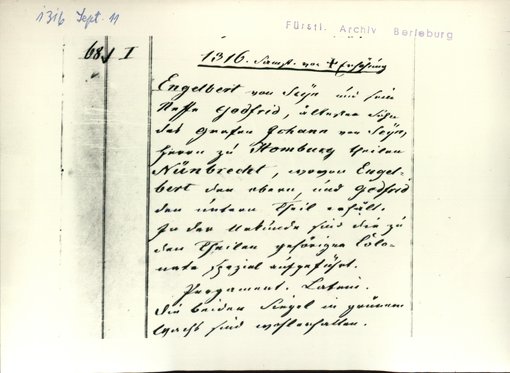 1316 Sept. 11
Fürstl. Archiv Berleburg
68. I
1316. Samst. vor † Erhöhung
Engelbert von Seÿn und sein
Neffe Godfrid, ältester Sohn
des Grafen Johann von Seÿn,
Herrn zu Homburg theilen
Nünbrecht, wovon Engel-
bert den obern, und Godfrid
den untern Theil erhält.
In der Urkunde sind die zu
den Theilen gehörigen Colo-
nate spezial aufgeführt.
Pergament. Latein.
Die beiden Siegel in grünem
Wachs sind wohlerhalten.